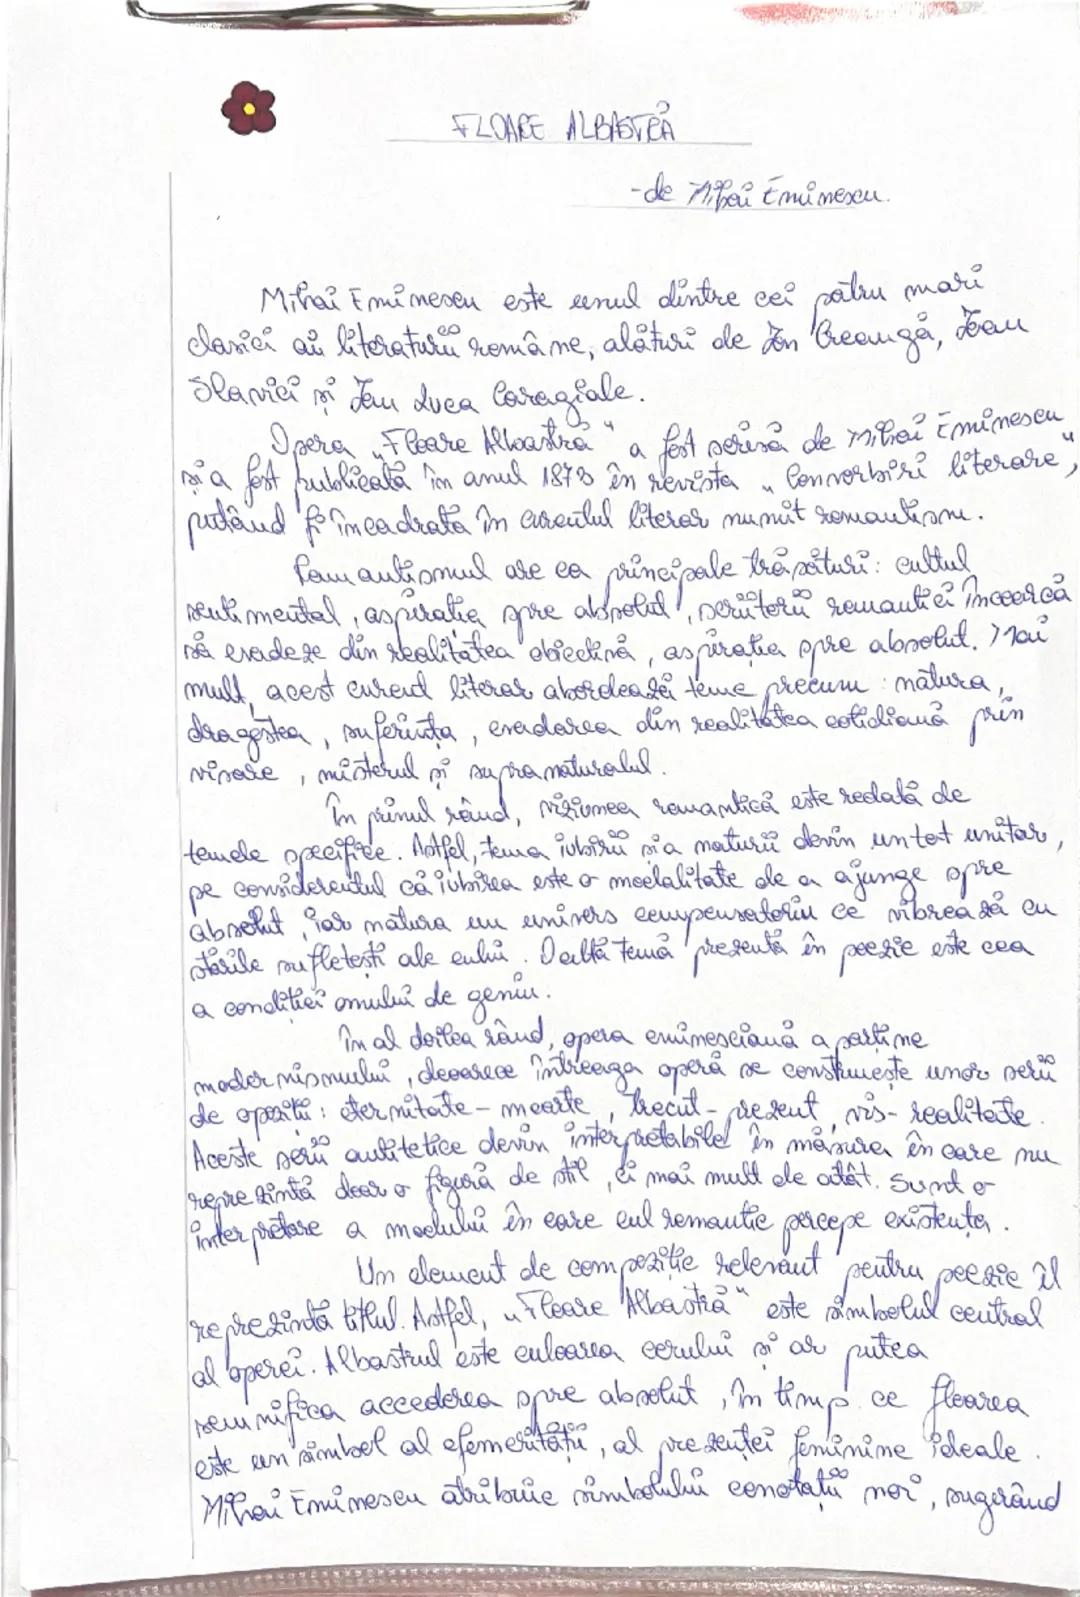 FLOARE ALBASTRĂ
-de Mihai Eminescu.
Mihai Eminescu este unul dintre cei patru mari
clasici ai literaturii române, alături de Ion Creangă, Ioan
Slavici și Ion Luca Caragiale.
Opera „Floare Albastră" a fost scrisă de Mihai Eminescu
și a fost publicată în anul 1873 în revista „Convorbiri literare",
putând fi încadrată în curentul literar numit romantism.
Romantismul are ca principale trăsături: cultul
sentimental, aspirația spre absolut, scriitorii romantici încearcă
să evadeze din realitatea obiectivă, aspirația spre absolut. Mai
mult, acest curent literar abordează teme precum: natura,
dragostea, suferința, evadarea din realitatea cotidiană prin
visare, misterul și supranaturalul.
În primul rând, viziunea romantică este redată de
temele specifice. Astfel, tema iubirii și a naturii devin un tot unitar,
pe considerentul că iubirea este o modalitate de a ajunge spre
absolut, iar natura un univers compensatoriu ce vibrează cu
stările sufletești ale eului. O altă temă prezentă în poezie este cea
a condiției omului de geniu.
În al doilea rând, opera eminesciană aparține
modernismului, deoarece întreaga operă se construiește unor serii
de opoziții: eternitate - moarte, trecut - prezent, vis - realitate.
Aceste serii antitetice devin interpretabile în măsura în care nu
reprezintă doar o figură de stil, ci mai mult de atât. Sunt o
interpretare a modului în care eul romantic percepe existența.
Un element de compoziție relevant pentru poezie îl
reprezintă titlul. Astfel, „Floare Albastră" este simbolul central
al operei. Albastrul este culoarea cerului și ar putea
semnifica accederea spre absolut, în timp ce floarea
este un simbol al efemerității, al prezenței feminine ideale.
Mihai Eminescu atribuie simbolului conotații noi, sugerând